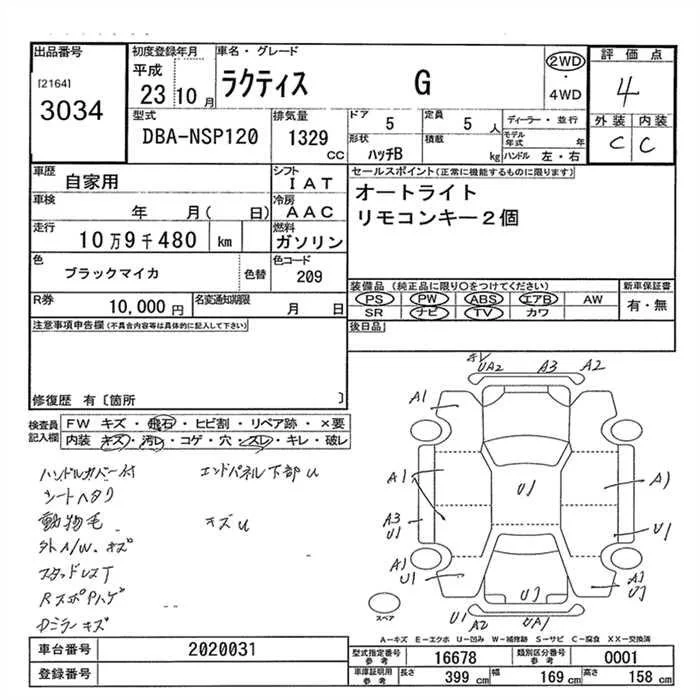 出品番号
[2164]
3034
初度登録年月
平成
23年10月
車名・グレード
ラクティス G
2WD
・
4WD
評価点
4
外装 内装
C C
型式
DBA-NSP120
排気量
1329
CC
ドア 5
定員 5 人
形状 ハッチB
積載 kg
ディーラー・並行
モデル年式 年
ハンドル 左・右
車歴 自家用
シフト IAT
車検 年 月( 日)
冷房 AAC
走行 10万9千480 km
燃料 ガソリン
色 ブラックマイカ
色替
色コード 209
R券 10,000円
名変通知期限 月 日
セールスポイント(正常に機能するものに限ります)
オートライト
リモコンキー2個
装備品(純正品に限り〇をつけてください)
PS PW ABS エアB AW
SR ナビ TV カワ
新車保証書
有・無
後日品
注意事項申告欄(不具合内容等は具体的に記入して下さい)
修復歴 有〔箇所 〕
検査員記入欄
FW キズ・飛石・ヒビ割・リペア跡・×要
内装 キズ・汚レ・コゲ・穴・スレ・キレ・破レ
ハンドルカバー付 エンドパネル下部U
シートヘタリ
動物毛 キズU
外A/W.キズ
スタッドレスT
RスポPハゲ
Dミラーキズ
UA2 A3 A2
A1
A1 U1 A1
A3
U1 U1
A1
U1
U1
U1 A2 UA1
スペア
A-キズ E-エクボ U-凹み W-補修跡 S-サビ C-腐食 XX-交換済
車台番号 2020031
登録番号
型式指定番号 参考 16678
類別区分番号 参考 0001
車庫証明用 参考
長さ 399 cm
幅 169 cm
高さ 158 cm